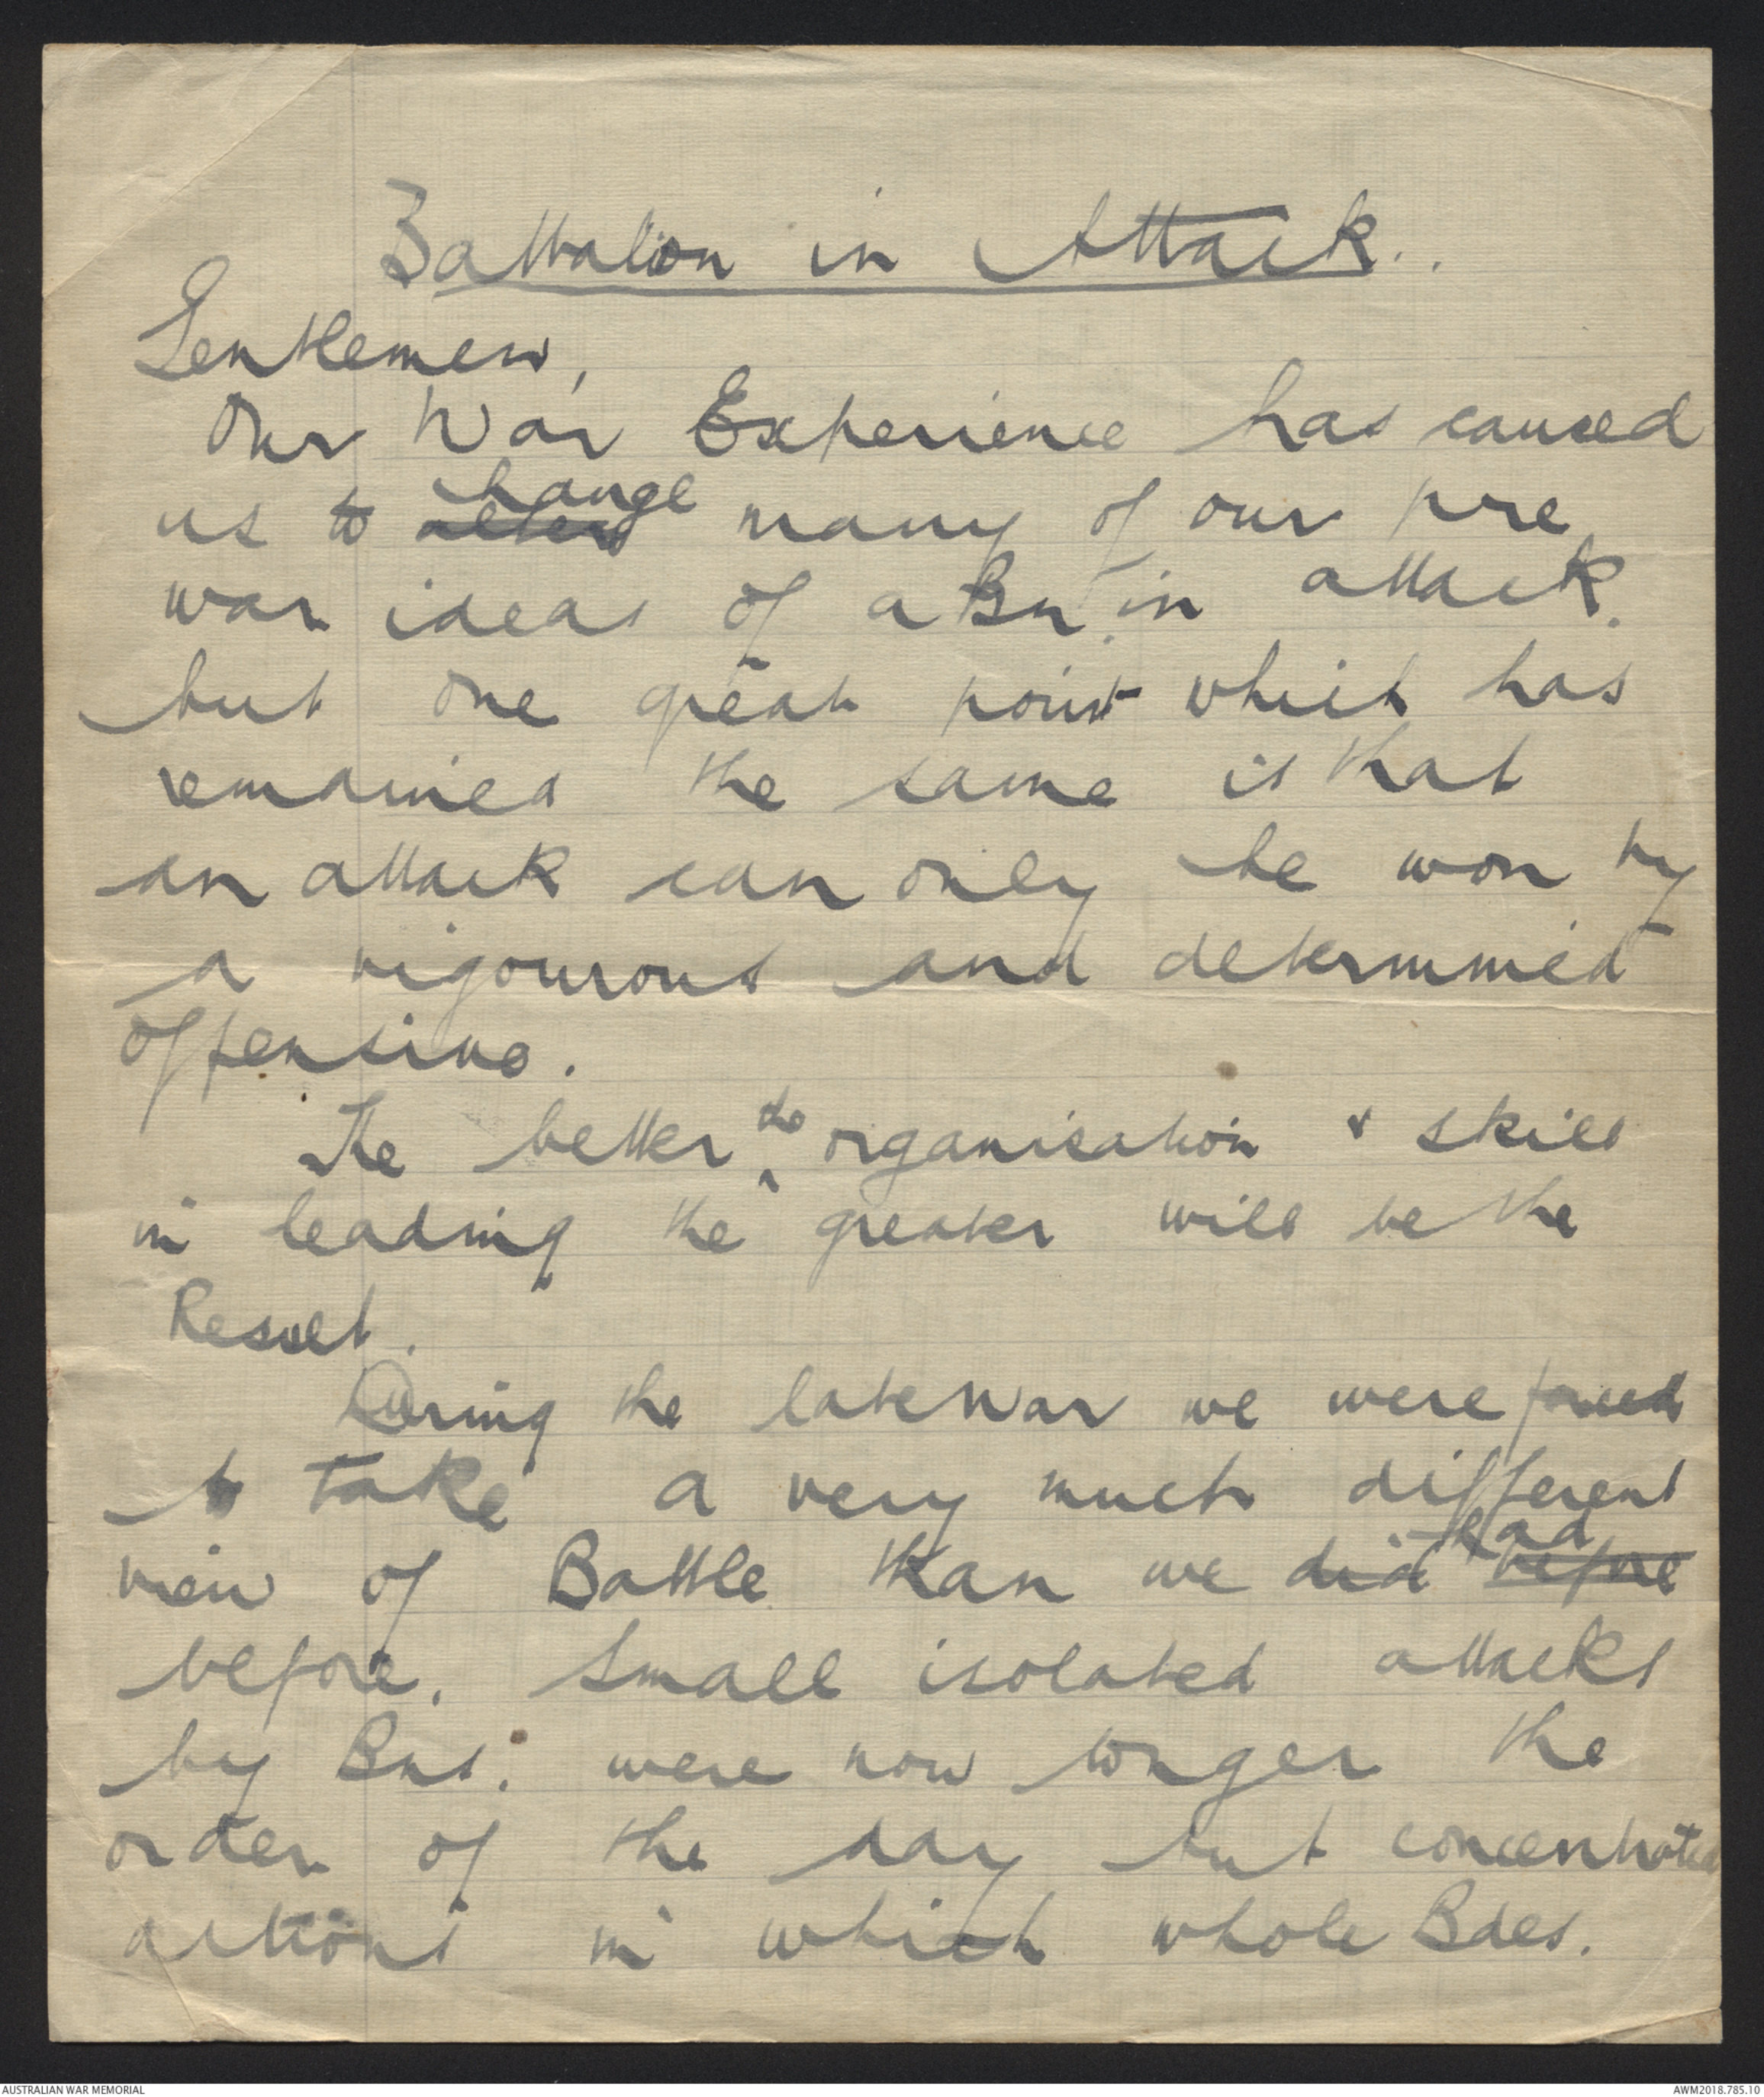 Battalion in Attack..
Gentlemen,
Our War Experience has caused
change
us to alter many of our pre
war ideas of a Bn. in attack.
but one great point which has
remained the same is that
an attack can only be won by
a vigourous and determined
offensive.
The better the organisation & skill
in leading the greater will be the
Result.
During the late War we were forced
to take a very much different
view of Battle than we did had before
before. Small isolated attacks
by Bns. were now longer the
order of the day but concentrated
actions in which whole Bdes.
AUSTRALIAN WAR MEMORIAL
AWM2018.785.10